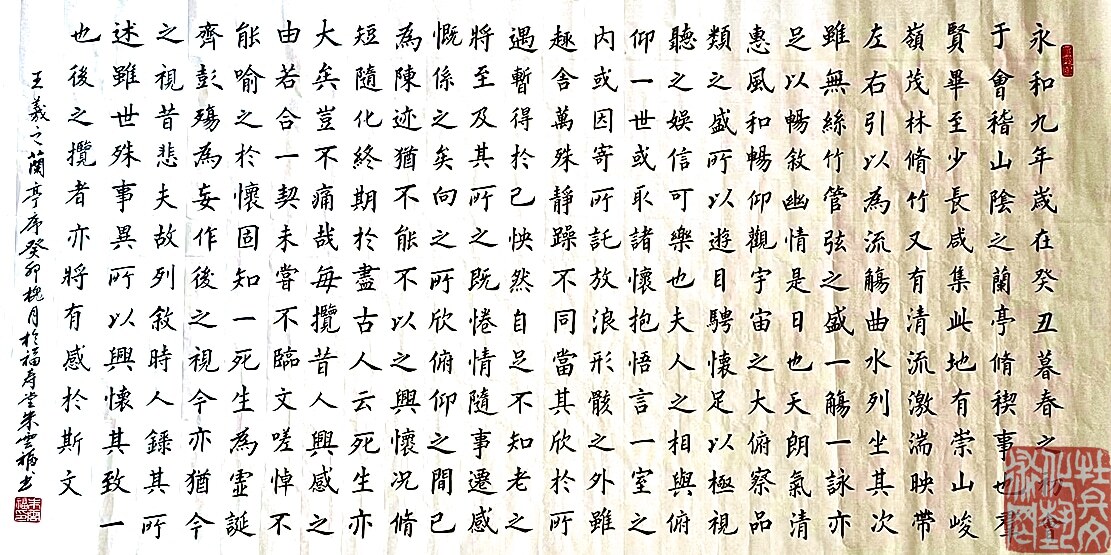 永和九年歲在癸丑暮春之初會
于會稽山陰之蘭亭脩稧事也羣
賢畢至少長咸集此地有崇山峻
嶺茂林脩竹又有清流激湍映帶
左右引以為流觴曲水列坐其次
雖無絲竹管弦之盛一觴一詠亦
足以暢敘幽情是日也天朗氣清
惠風和暢仰觀宇宙之大俯察品
類之盛所以遊目騁懷足以極視
聽之娛信可樂也夫人之相與俯
仰一世或取諸懷抱悟言一室之
內或因寄所託放浪形骸之外雖
趣舍萬殊靜躁不同當其欣於所
遇暫得於己怏然自足不知老之
將至及其所之既惓情隨事遷感
慨係之矣向之所欣俯仰之間已
為陳迹猶不能不以之興懷況脩
短隨化終期於盡古人云死生亦
大矣豈不痛哉每攬昔人興感之
由若合一契未嘗不臨文嗟悼不
能喻之於懷固知一死生為虛誕
齊彭殤為妄作後之視今亦猶今
之視昔悲夫故列敘時人錄其所
述雖世殊事異所以興懷其致一
也後之攬者亦將有感於斯文
王羲之蘭亭序癸卯槐月於福壽堂朱雲福書